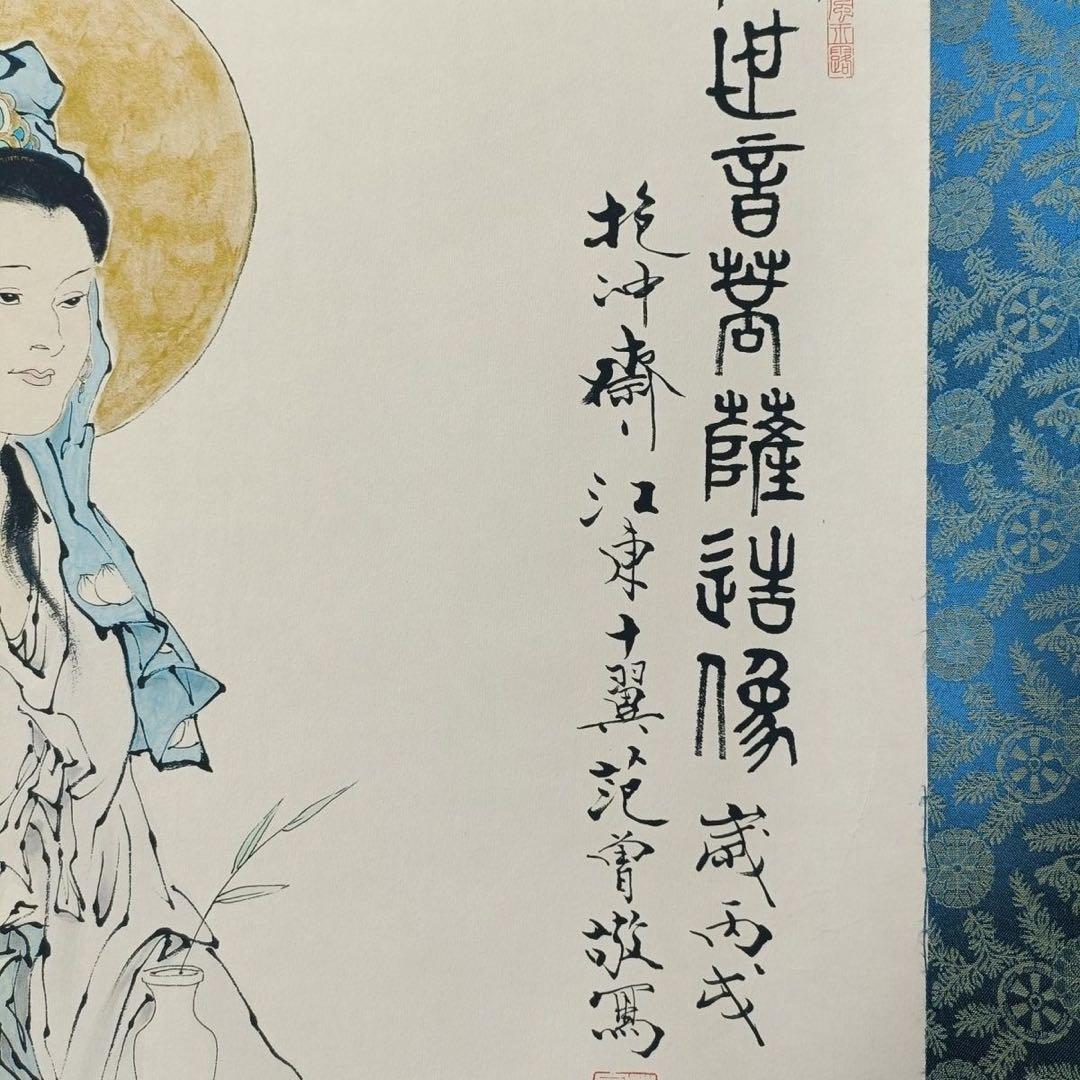 世音菩薩造像 歲丙戌
抱冲齋、江東十翼范曾敬寫